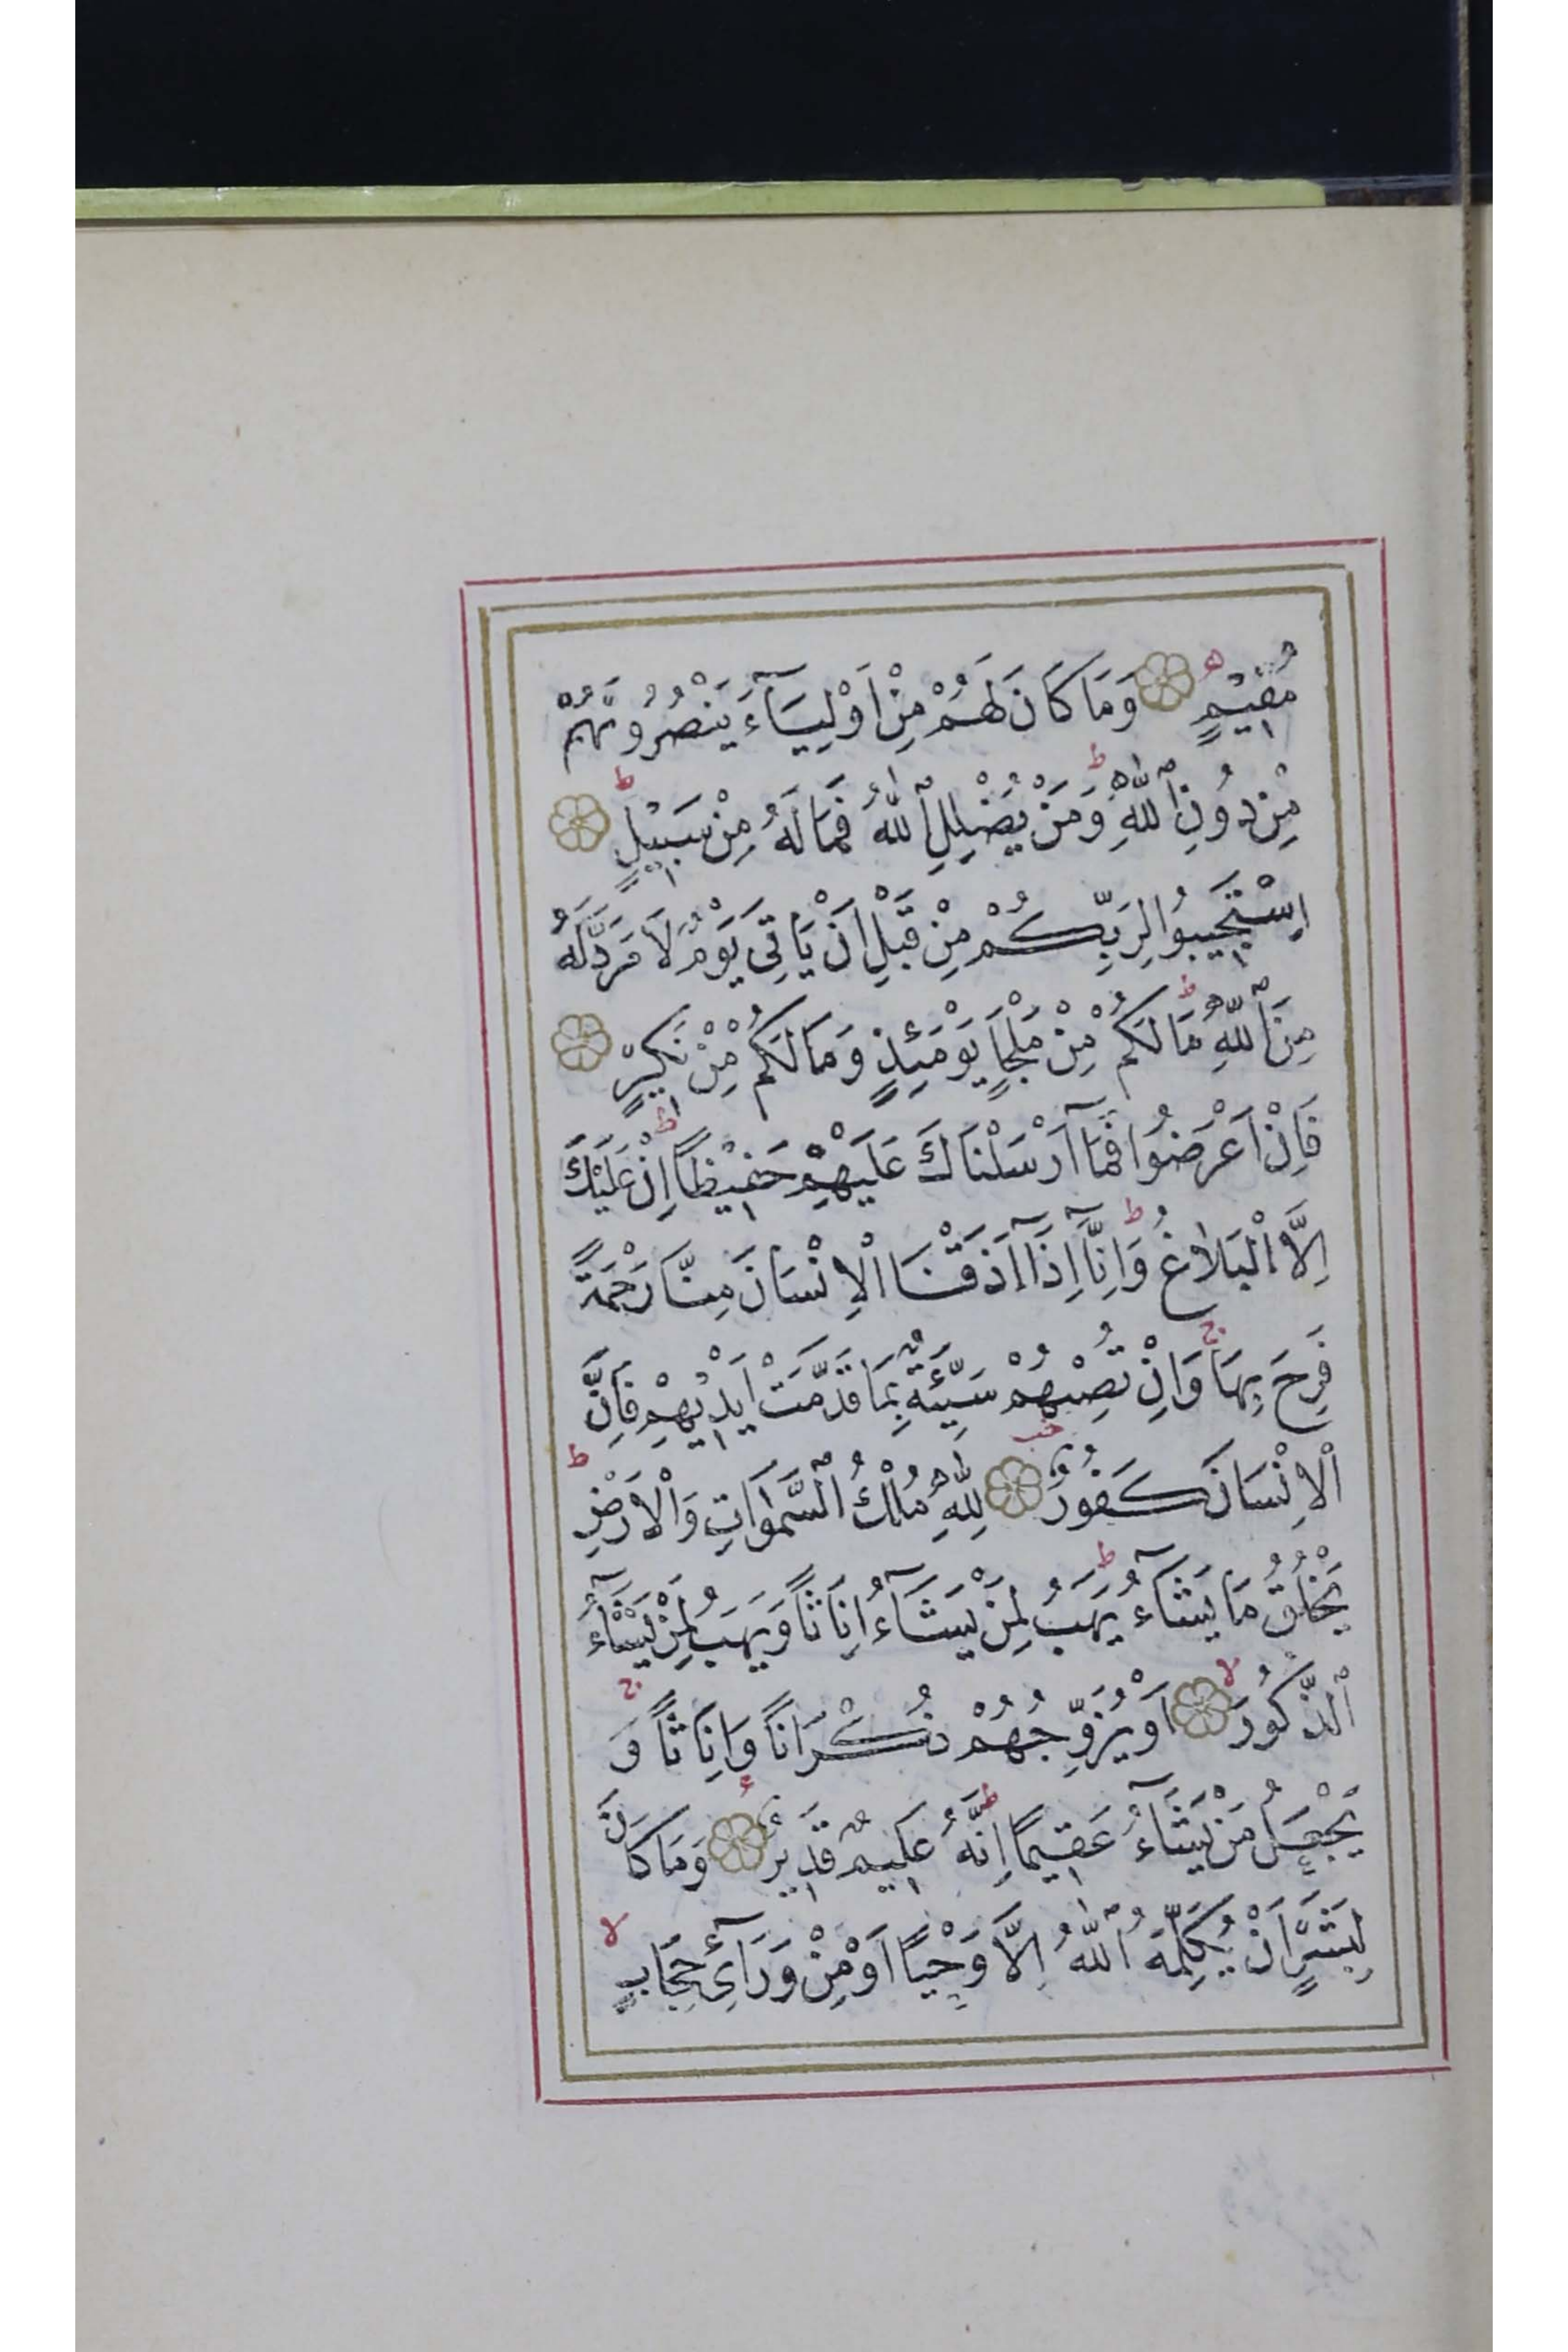 مُقِيمٍ ۝ وَمَا كَانَ لَهُمْ مِنْ اَوْلِيَآءَ يَنْصُرُونَهُمْ
مِنْ دُونِ ٱللّٰهِ ۗ وَمَنْ يُضْلِلِ ٱللّٰهُ فَمَا لَهُ مِنْ سَبِيلٍ ۝
اِسْتَجِيبُوا لِرَبِّكُمْ مِنْ قَبْلِ اَنْ يَاْتِىَ يَوْمٌ لَا مَرَدَّ لَهُ
مِنَ ٱللّٰهِ مَا لَكُمْ مِنْ مَلْجَاٍ يَوْمَئِذٍ وَمَا لَكُمْ مِنْ نَكِيرٍ ۝
فَاِنْ اَعْرَضُوا فَمَآ اَرْسَلْنَاكَ عَلَيْهِمْ حَفِيظًا اِنْ عَلَيْكَ
اِلَّا الْبَلَاغُ وَاِنَّآ اِذَآ اَذَقْنَا الْاِنْسَانَ مِنَّا رَحْمَةً
فَرِحَ بِهَا وَاِنْ تُصِبْهُمْ سَيِّئَةٌ بِمَا قَدَّمَتْ اَيْدِيهِمْ فَاِنَّ
الْاِنْسَانَ كَفُورٌ ۝ لِلّٰهِ مُلْكُ السَّمٰوَاتِ وَالْاَرْضِ
يَخْلُقُ مَا يَشَآءُ يَهَبُ لِمَنْ يَشَآءُ اِنَاثًا وَيَهَبُ لِمَنْ يَشَآءُ
ٱلذُّكُورَ ۝ اَوْ يُزَوِّجُهُمْ ذُكْرَانًا وَاِنَاثًا وَ
يَجْعَلُ مَنْ يَشَآءُ عَقِيمًا اِنَّهُ عَلِيمٌ قَدِيرٌ ۝ وَمَا كَانَ
لِبَشَرٍ اَنْ يُكَلِّمَهُ ٱللّٰهُ اِلَّا وَحْيًا اَوْ مِنْ وَرَآئِ حِجَابٍ